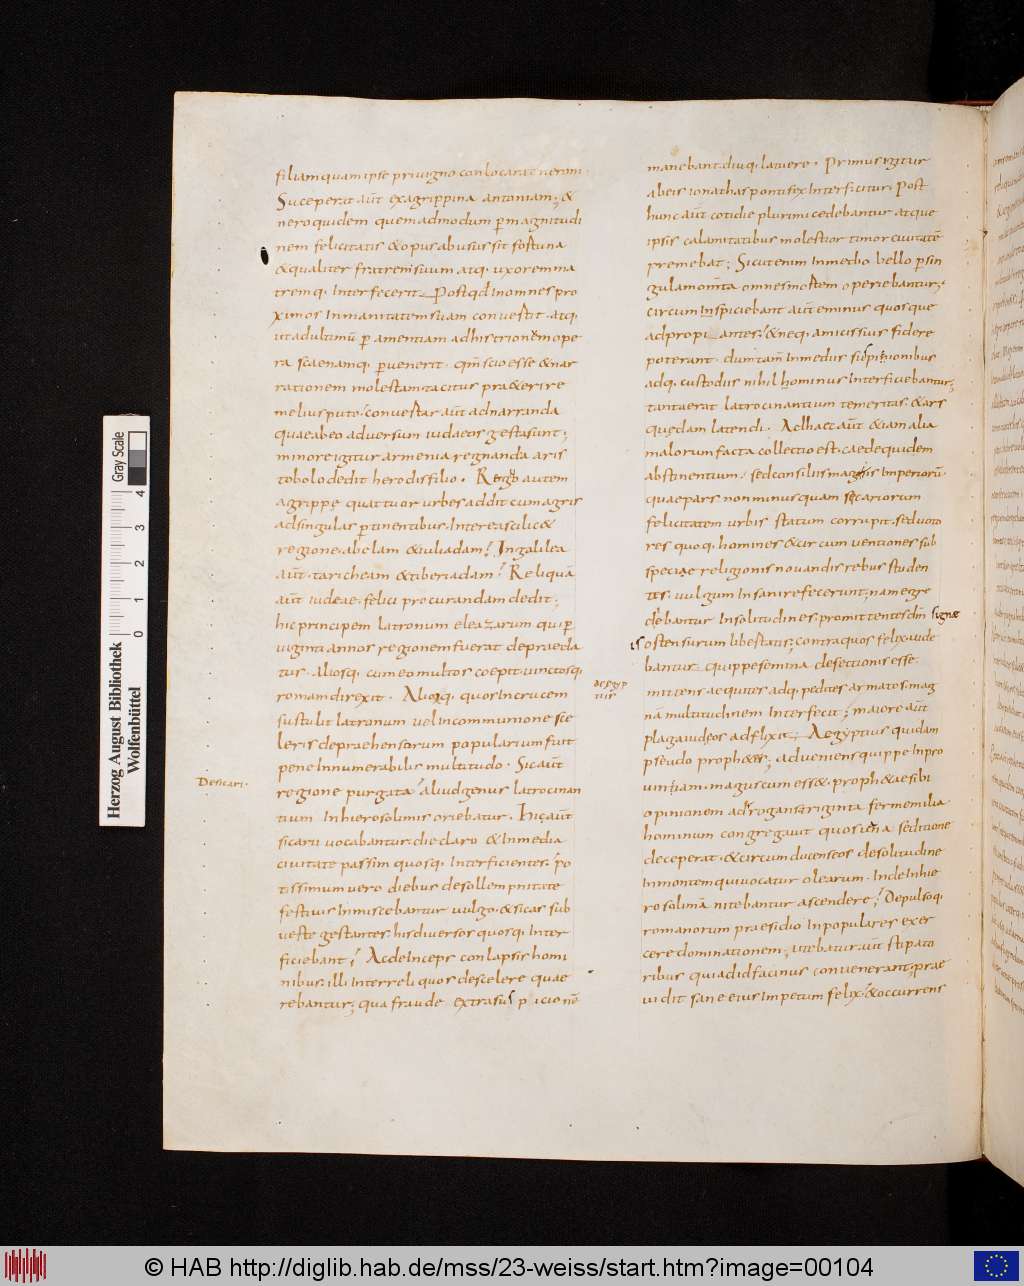 filiam quam ipse privigno conlocarat neroni.
Susceperat aūt exagrippina antoniam; &
nero quidem quemadmodum p magnitudi
nem felicitatis & opus abusus sit fortuna
& qualiter fratrem suum atq. uxorem ma
tremq. interfecerit. Postqđ in omnes pro
ximos inmanitatem suam convertit. atq.
ut ad ultimū p amentiam ad histrionem ope
ra scaenamq. pvenerit. qm̄ scio esse & nar
rationem molestam. tacitus praeterire
melius puto. convertar aūt ad narranda
quae ab eo adversum iudaeos gesta sunt;
minore igitur armenia regnanda aris
tobolo dedit herodis filio. Regno autem
agrippę quattuor urbes addit cum agris
ad singulas ptinentibus. Interea scilic&
regione. abelam & iuliadam. In galilea
aūt. taricheam & tiberiadam. Reliquā
aūt iudeae. felici procurandam dedit.
hic principem latronum eleazarum qui p
viginta annos regionem fuerat depraeda
tus. Aliosq. cum eo multos coepit. vinctosq.
romam direxit. Alioq. quos in crucem
sustulit latronum vel in communione sce
leris depraehensorum popularium fuit
pene innumerabilis multitudo. Sic aūt
regione purgata. aliud genus latrocinan
tium In hierosolimis oriebatur. Hic aūt
sicarii vocabantur. die claro & In media
civitate passim quosq. Interficientes. po
tissimum vero diebus desollempnitate
festivis Inmiscebantur vulgo. & sicas sub
veste gestantes. his diversos quosq. Inter
ficiebant. Ac deinceps conlapsis homi
nibus. illi Inter reliquos descelere quae
rebantur; qua fraude extra suspicionē
De sicari.
manebant. diuq. latuere. Primus igitur
ab eis ionathas pontifix Interficitur. Post
hunc aūt cotidie plurimi cedebantur atque
ipsis calamitatibus molestior timor civitatē
premebat; Sicut enim Inmedio bello p sin
gula momta omnes mortem operiebantur;
circum Inspiciebant aūt eminus quosque
adpropiantes. & neq. amicis suis fidere
poterant. dum tam̄ In mediis suspitionibus
adq. custodiis nihil hominus Interficiebantur;
tanta erat latrocinantium temeritas. & ars
quędam latendi. Ad haec aūt & iam alia
malorum facta collectio est. caede quidem
abstinentium. sed consiliis magis Imperiorū.
quae pars non minus quam sicariorum
felicitatem urbis statum corrupit. seductores
quoq. homines & circumventiones sub
speciae religionis novandis rebus studen
tes. vulgum Insanire fecerunt; nam egre
debantur Insolitudines. promittentes dm̄ signa
is ostensurum libertatis; contra quos felix. vide
bantur quippe semina defectionis esse.
mittens aequites adq. pedites armatos. mag
nā multitudinem Interfecit; maiore aūt
plaga iudęos adflixit. Aegyptius quidam
pseudo proph&es; adveniens quippe Inpro
vintiam. magus cum ess&. proph&ae sibi
opinionem adrogans. triginta ferme milia
hominum congregavit quos sua seditione
deceperat. & circumducens eos desolitudine
In montem qui vocatur olearum. Inde In hie
rosolimā nitebantur ascendere. Depulsoq.
romanorum praesidio In populares exer
cere dominationem; utebatur aūt stipato
ribus qui ad id facinus convenerant; prae
vidit sane eius Impetum felix. & occurrens
de egyp
tiis
Herzog August Bibliothek
Wolfenbüttel
0 1 2 3 4
Gray Scale
© HAB http://diglib.hab.de/mss/23-weiss/start.htm?image=00104